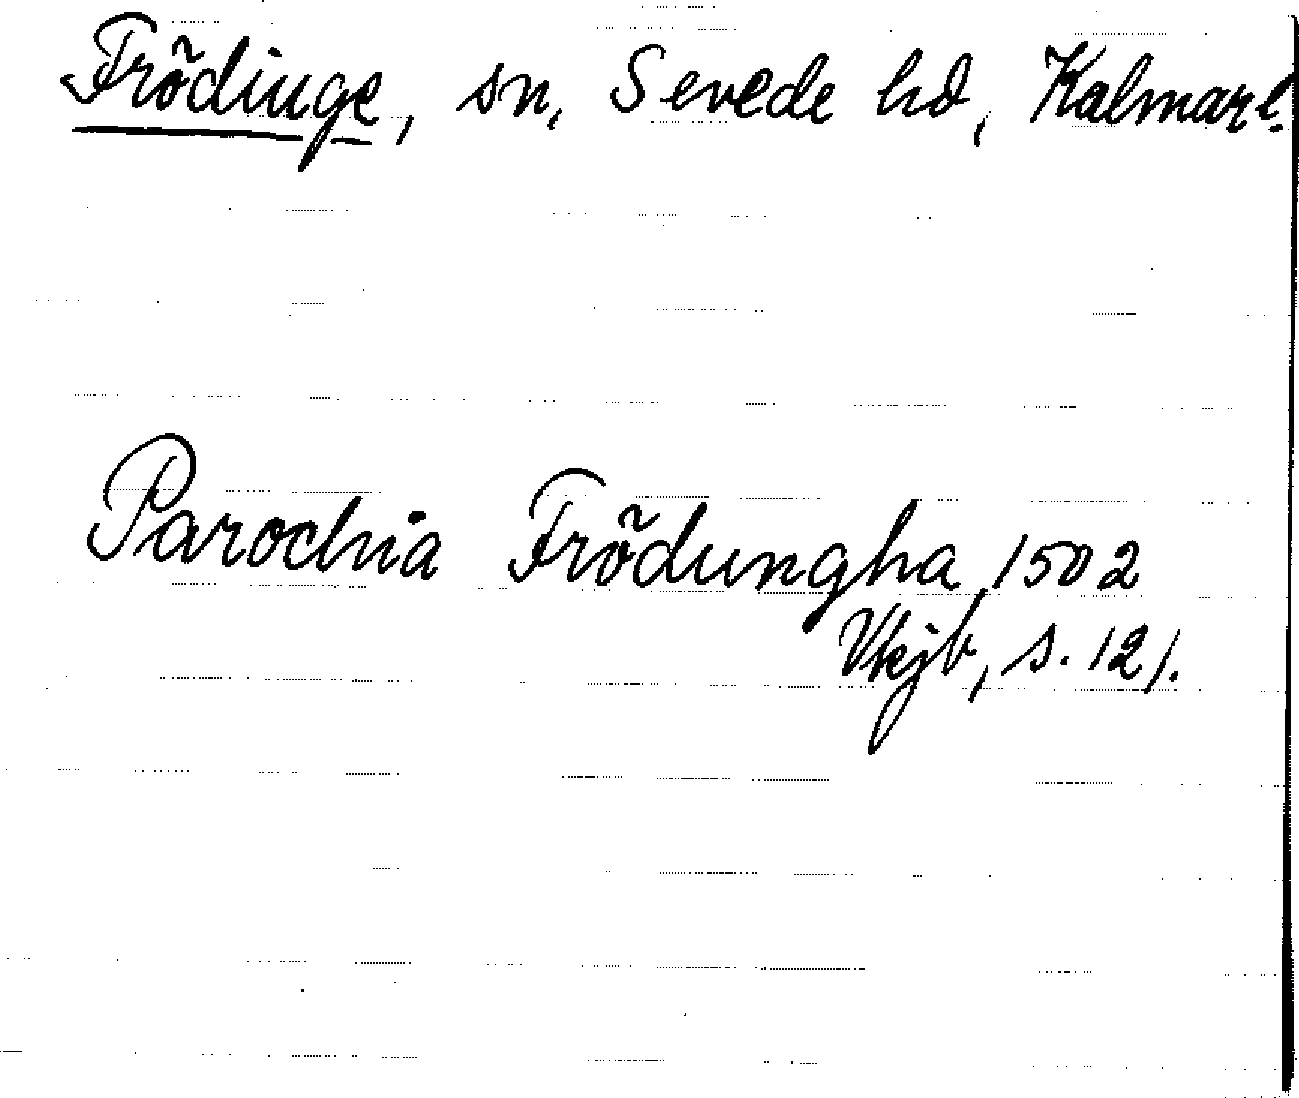 Frödinge, sn, Sevede hd, Kalmar l.
Parochia Frödungha 1502
Vkjb, s. 121.